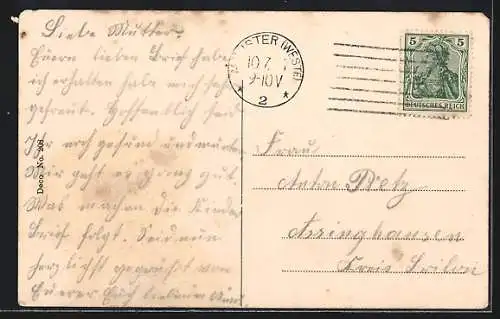 Liebe Mutter!
Euern lieben Brief habe
ich erhalten habe mich sehr
gefreut. Hoffentlich seid
Ihr noch gesund und munter
Mir geht es ganz gut.
Was machen die Kinder
Brief folgt. Seid nun
herzlichst gegrüßt von
Eurer Euch liebenden
Deco. No. 208.
MÜNSTER (WESTF)
10.7.
9-10V
* 2 *
5 5
DEUTSCHES REICH
Frau
Anton Pretz
Assinghausen
Kreis Brilon